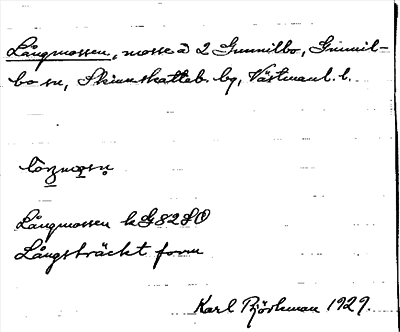 Långmossen, mosse å 2 Gunnilbo, Gunnil-
bo sn, Skinnskatteb. bg, Västmanl. l.
Långmossen kG82SO
Långsträckt form
Karl Björkman 1929.